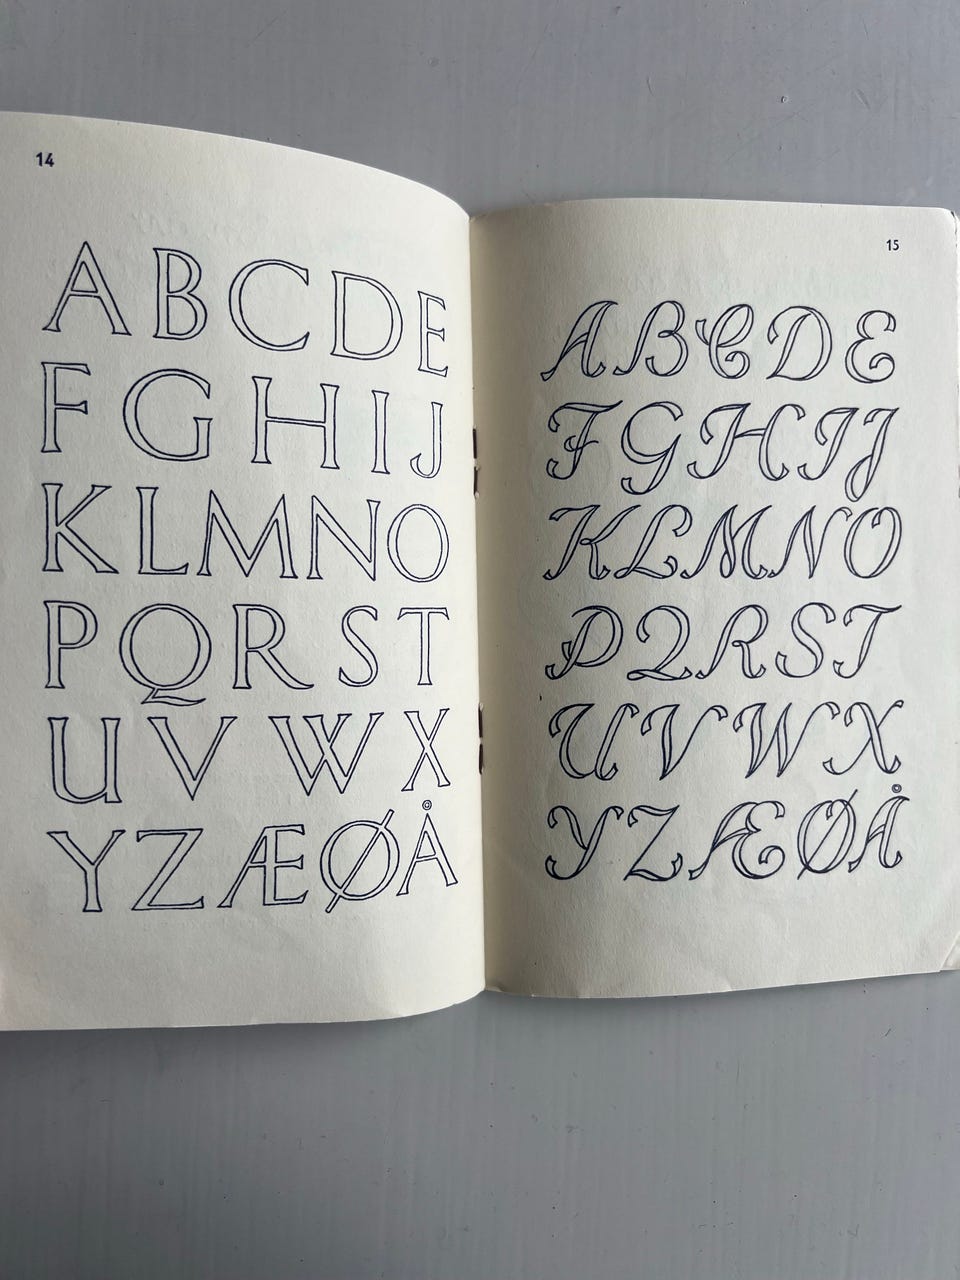 14
ABCDE
FGHIJ
KLMNO
PQRST
UVWX
YZÆØÅ
15
ABCDE
FGHIJ
KLMNO
PQRST
UVWX
YZÆØÅ